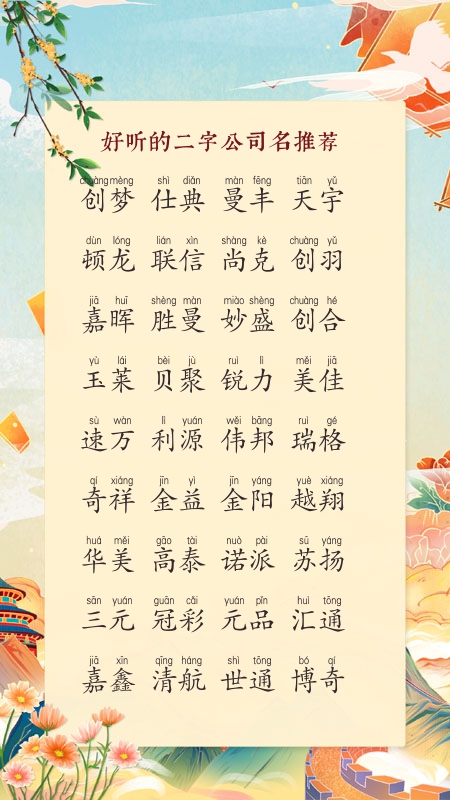 好听的二字公司名推荐
chuàng mèng shì diǎn màn fēng tiān yǔ
创梦 仕典 曼丰 天宇
dùn lóng lián xìn shàng kè chuàng yǔ
顿龙 联信 尚克 创羽
jiā huī shèng màn miào shèng chuàng hé
嘉晖 胜曼 妙盛 创合
yù lái bèi jù ruì lì měi jiā
玉莱 贝聚 锐力 美佳
sù wàn lì yuán wěi bāng ruì gé
速万 利源 伟邦 瑞格
qí xiáng jīn yì jīn yáng yuè xiáng
奇祥 金益 金阳 越翔
huá měi gāo tài nuò pài sū yáng
华美 高泰 诺派 苏扬
sān yuán guān cǎi yuán pǐn huì tōng
三元 冠彩 元品 汇通
jiā xīn qīng háng shì tōng bó qí
嘉鑫 清航 世通 博奇